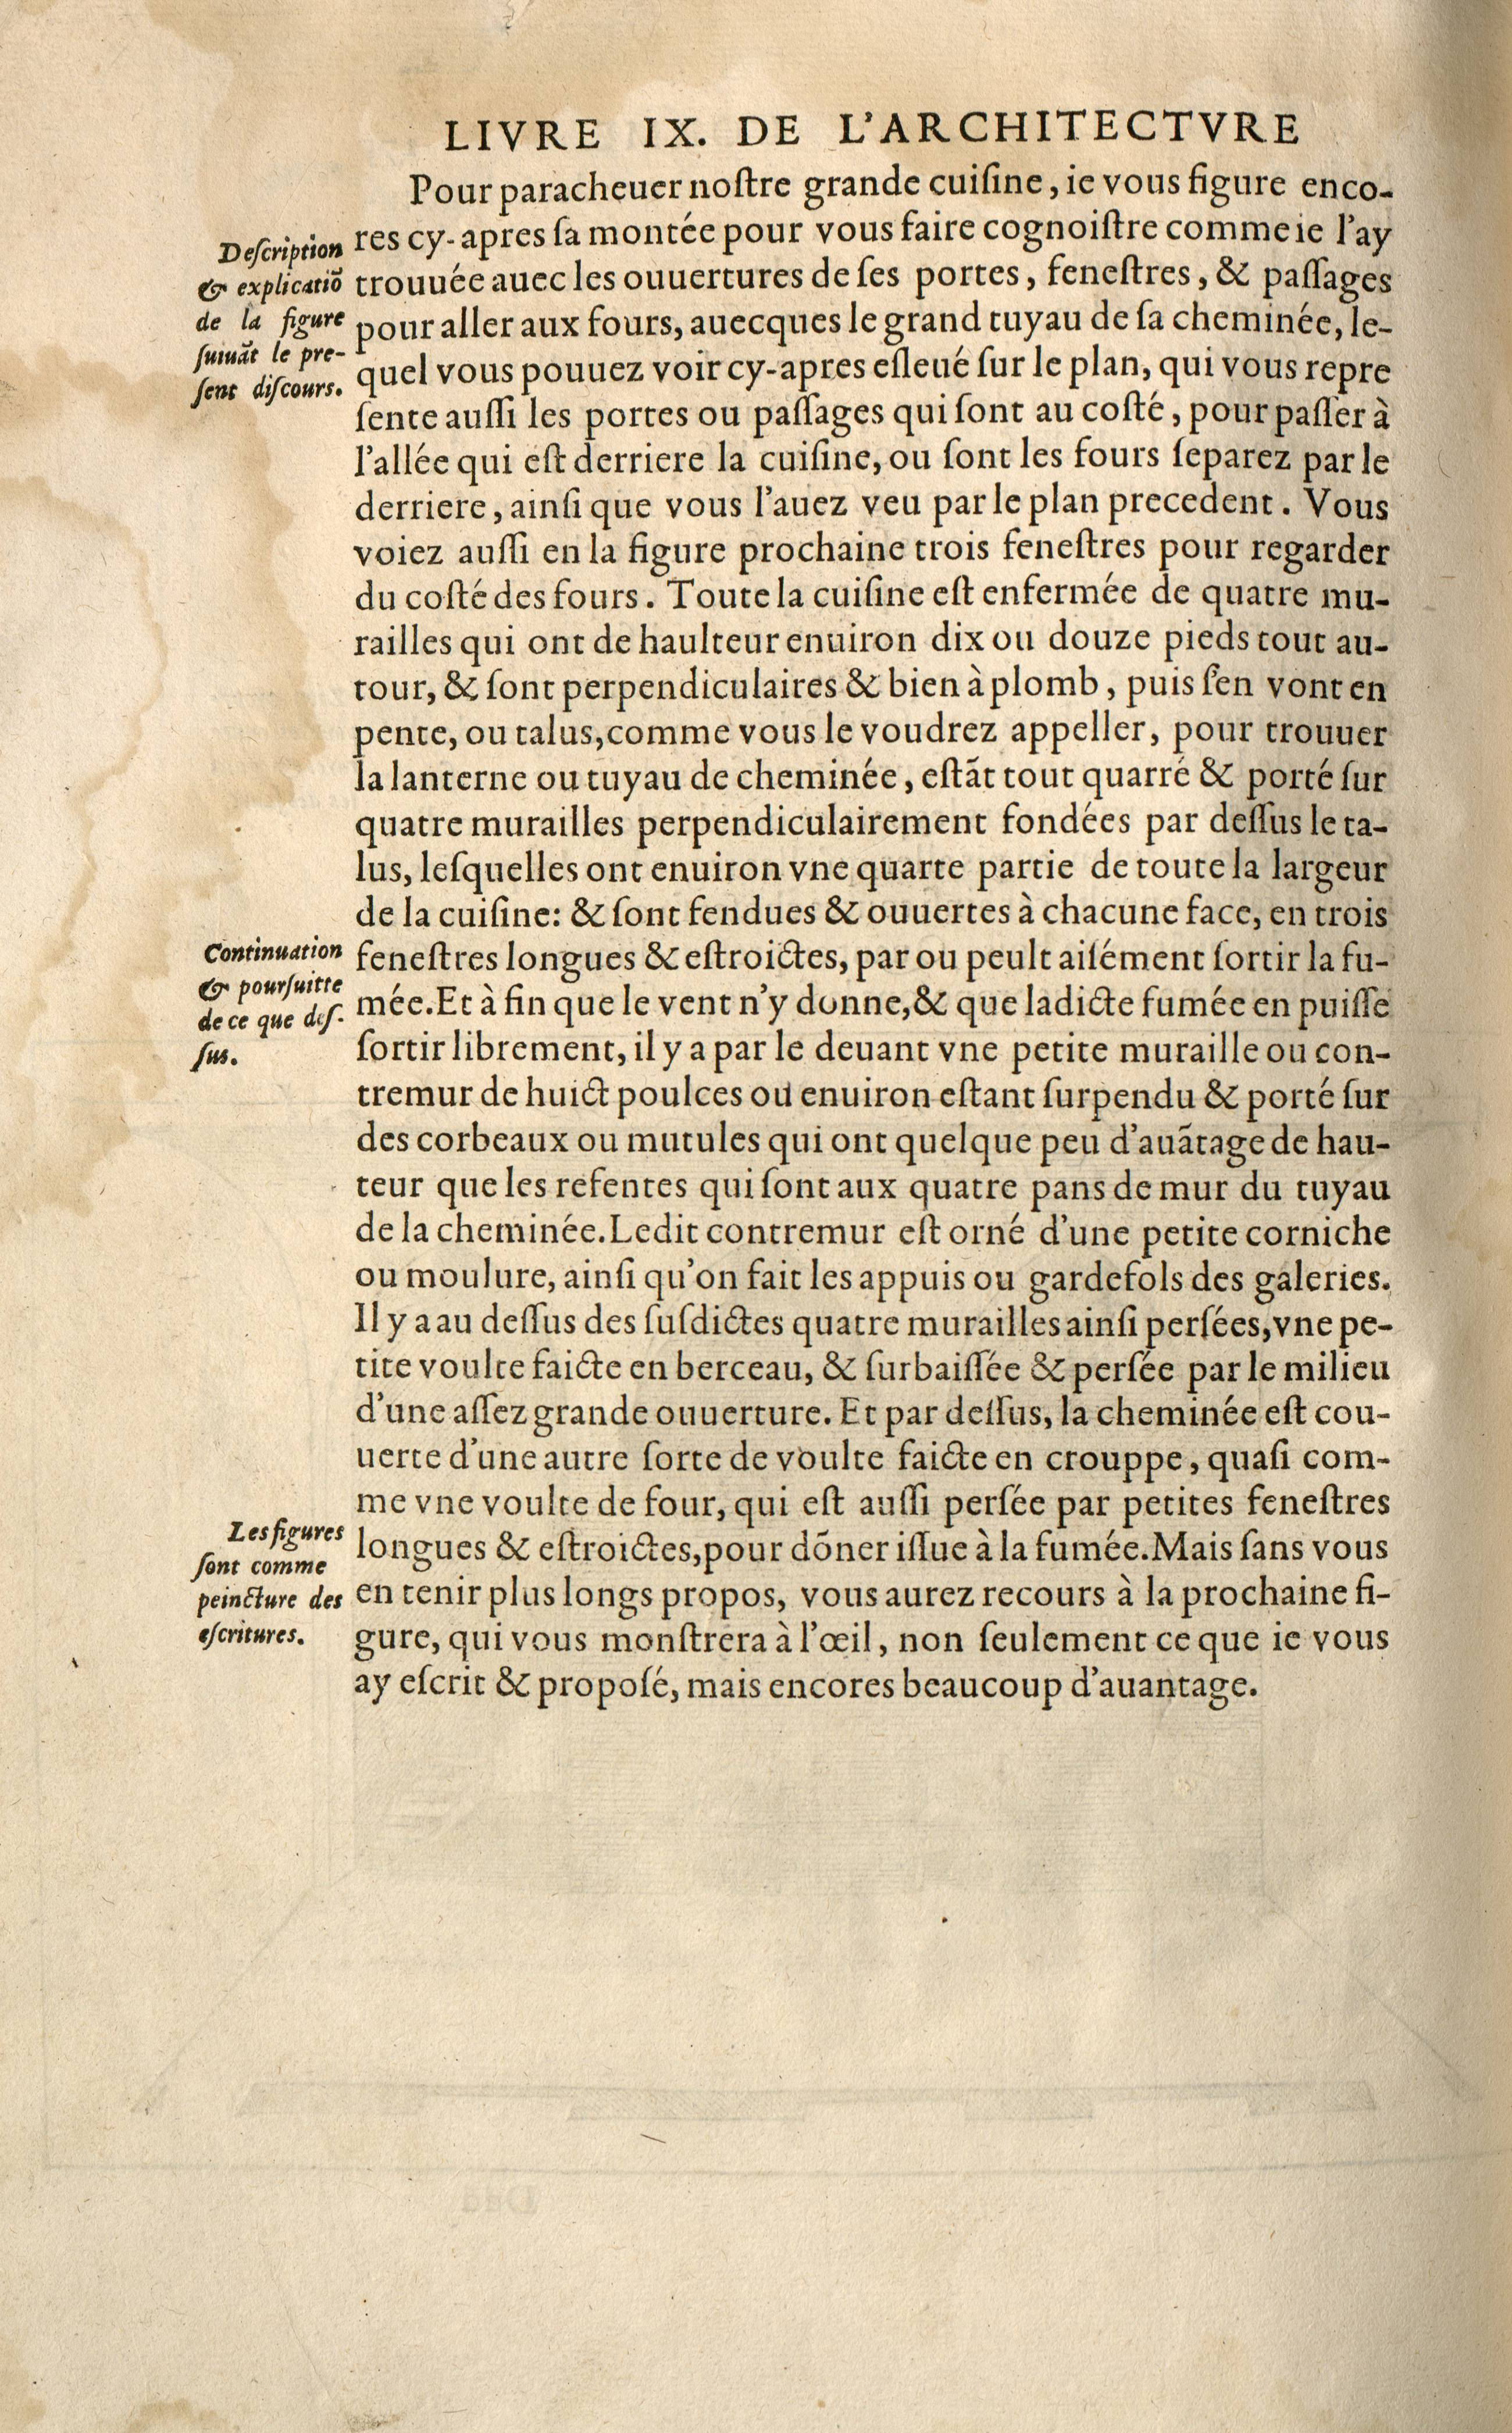 LIVRE IX. DE L'ARCHITECTVRE
Pour paracheuer nostre grande cuisine, ie vous figure enco-
res cy-apres sa montée pour vous faire cognoistre comme ie l'ay
trouuée auec les ouuertures de ses portes, fenestres, & passages
pour aller aux fours, auecques le grand tuyau de sa cheminée, le-
quel vous pouuez voir cy-apres esleué sur le plan, qui vous repre
sente aussi les portes ou passages qui sont au costé, pour passer à
l'allée qui est derriere la cuisine, ou sont les fours separez par le
derriere, ainsi que vous l'auez veu par le plan precedent. Vous
voiez aussi en la figure prochaine trois fenestres pour regarder
du costé des fours. Toute la cuisine est enfermée de quatre mu-
railles qui ont de haulteur enuiron dix ou douze pieds tout au-
tour, & sont perpendiculaires & bien à plomb, puis s'en vont en
pente, ou talus, comme vous le voudrez appeller, pour trouuer
la lanterne ou tuyau de cheminée, estãt tout quarré & porté sur
quatre murailles perpendiculairement fondées par dessus le ta-
lus, lesquelles ont enuiron vne quarte partie de toute la largeur
de la cuisine: & sont fendues & ouuertes à chacune face, en trois
fenestres longues & estroictes, par ou peult aisément sortir la fu-
mée. Et à fin que le vent n'y donne, & que ladicte fumée en puisse
sortir librement, il y a par le deuant vne petite muraille ou con-
tremur de huict poulces ou enuiron estant surpendu & porté sur
des corbeaux ou mutules qui ont quelque peu d'auãtage de hau-
teur que les refentes qui sont aux quatre pans de mur du tuyau
de la cheminée. Ledit contremur est orné d'une petite corniche
ou moulure, ainsi qu'on fait les appuis ou gardefols des galeries.
Il y a au dessus des susdictes quatre murailles ainsi persées, vne pe-
tite voulte faicte en berceau, & surbaissée & persée par le milieu
d'une assez grande ouuerture. Et par dessus, la cheminée est cou-
uerte d'une autre sorte de voulte faicte en crouppe, quasi com-
me vne voulte de four, qui est aussi persée par petites fenestres
longues & estroictes, pour dõner issue à la fumée. Mais sans vous
en tenir plus longs propos, vous aurez recours à la prochaine fi-
gure, qui vous monstrera à l'œil, non seulement ce que ie vous
ay escrit & proposé, mais encores beaucoup d'auantage.
Description
& explicatiõ
de la figure
suiuãt le pre-
sent discours.
Continuation
& poursuitte
de ce que des-
sus.
Les figures
sont comme
peincture des
escritures.